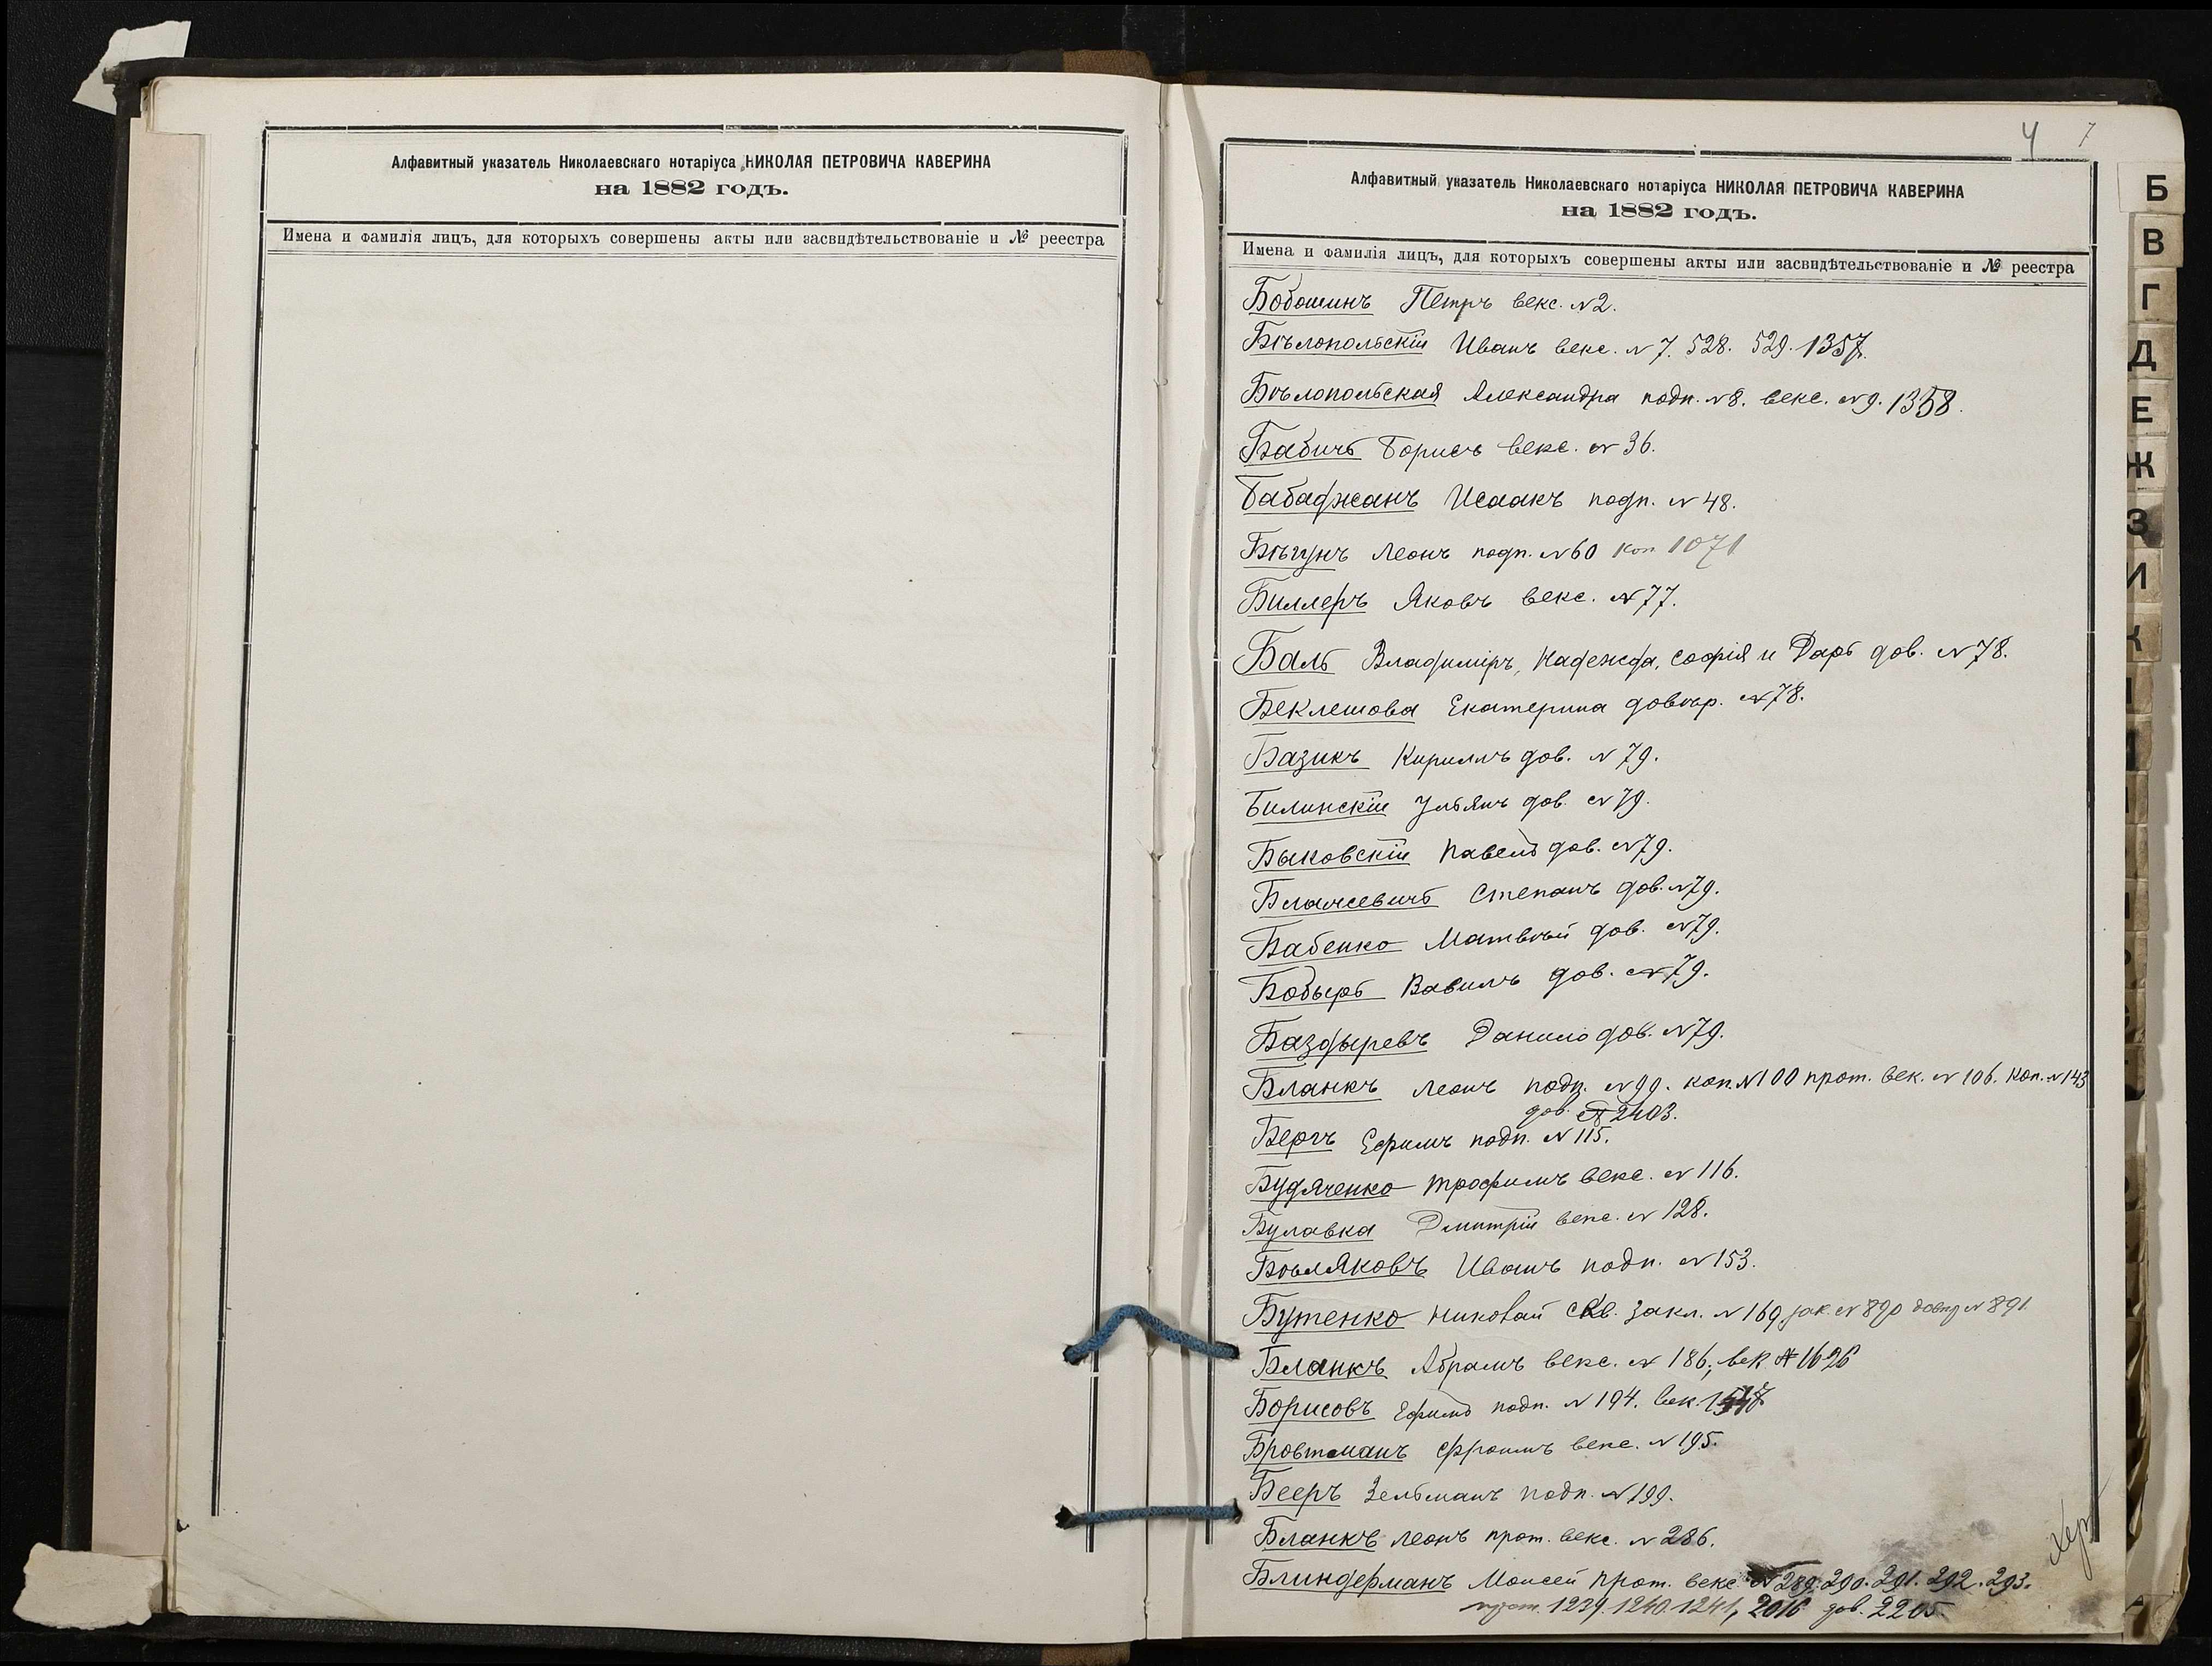 Алфавитный указатель Николаевскаго нотаріуса НИКОЛАЯ ПЕТРОВИЧА КАВЕРИНА
на 1882 годъ.
Имена и фамилія лицъ, для которыхъ совершены акты или засвидѣтельствованіе и № реестра
4 7
Алфавитный указатель Николаевскаго нотаріуса НИКОЛАЯ ПЕТРОВИЧА КАВЕРИНА
на 1882 годъ.
Имена и фамилія лицъ, для которыхъ совершены акты или засвидѣтельствованіе и № реестра
Бобошинъ Петръ векс. №2.
Бѣлопольскій Иванъ векс. № 7. 528. 529. 1357.
Бѣлопольская Александра подп. №8. векс. №9. 1358.
Бабичь Борисъ векс. № 36.
Бабаджанъ Исаакъ подп. № 48.
Бѣгунъ Леонъ подп. №60 коп 1071
Биллеръ Яковъ векс. №77.
Баль Владиміръ, Надежда, Софія и Дарь дов. №78.
Беклешова Екатерина довѣр. №78.
Базикъ Кириллъ дов. № 79.
Билинскій Ульянъ дов. №79.
Быковскій Павелъ дов. №79.
Степанъ дов. №79.
Бабенко Матвѣй дов. №79.
Бобырь Вавилъ дов. №79.
Баздыревъ Данило дов. №79.
Бланкъ Леонъ подп. №99. коп. №100 прот. век. № 106. коп. №143
дов. № 2403.
Бергъ Ефимъ подп. № 115.
Будяченко Трофимъ векс. № 116.
Булавка Дмитрій векс. № 128.
Бѣляковъ Иванъ подп. № 153.
Бутенко Николай закл. № 169 зак. № 890 довѣр № 891.
Бланкъ Абрамъ векс. № 186; век № 1626
Борисовъ Ефимъ подп. № 194. век.
Бровтманъ Фроимъ векс. № 195.
Бееръ Зельманъ подп. №199.
Бланкъ Леонъ прот. векс. № 286.
Блиндерманъ Моисей прот. векс №289. 290. 291. 292. 293.
прот. 1239. 1240. 1241, 2016 дов. 2205
Б
В
Г
Д
Е
Ж
З
И
К